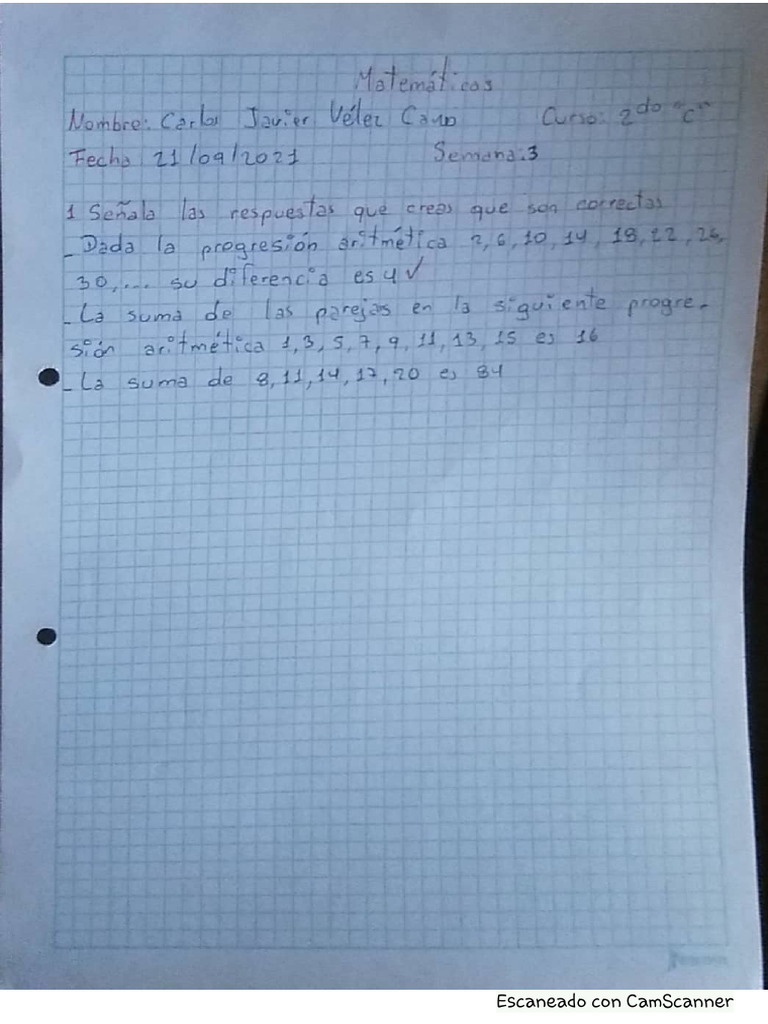 Matemáticas
Nombre: Carlos Javier Vélez Cano Curso: 2do "C"
Fecha 21/09/2021 Semana:3
1 Señala las respuestas que creas que son correctas
- Dada la progresión aritmética 2, 6, 10, 14, 18, 22, 26,
30,... su diferencia es 4 ✓
- La suma de las parejas en la siguiente progre-
sión aritmética 1, 3, 5, 7, 9, 11, 13, 15 es 16
- La suma de 8, 11, 14, 17, 20 es 84
Escaneado con CamScanner